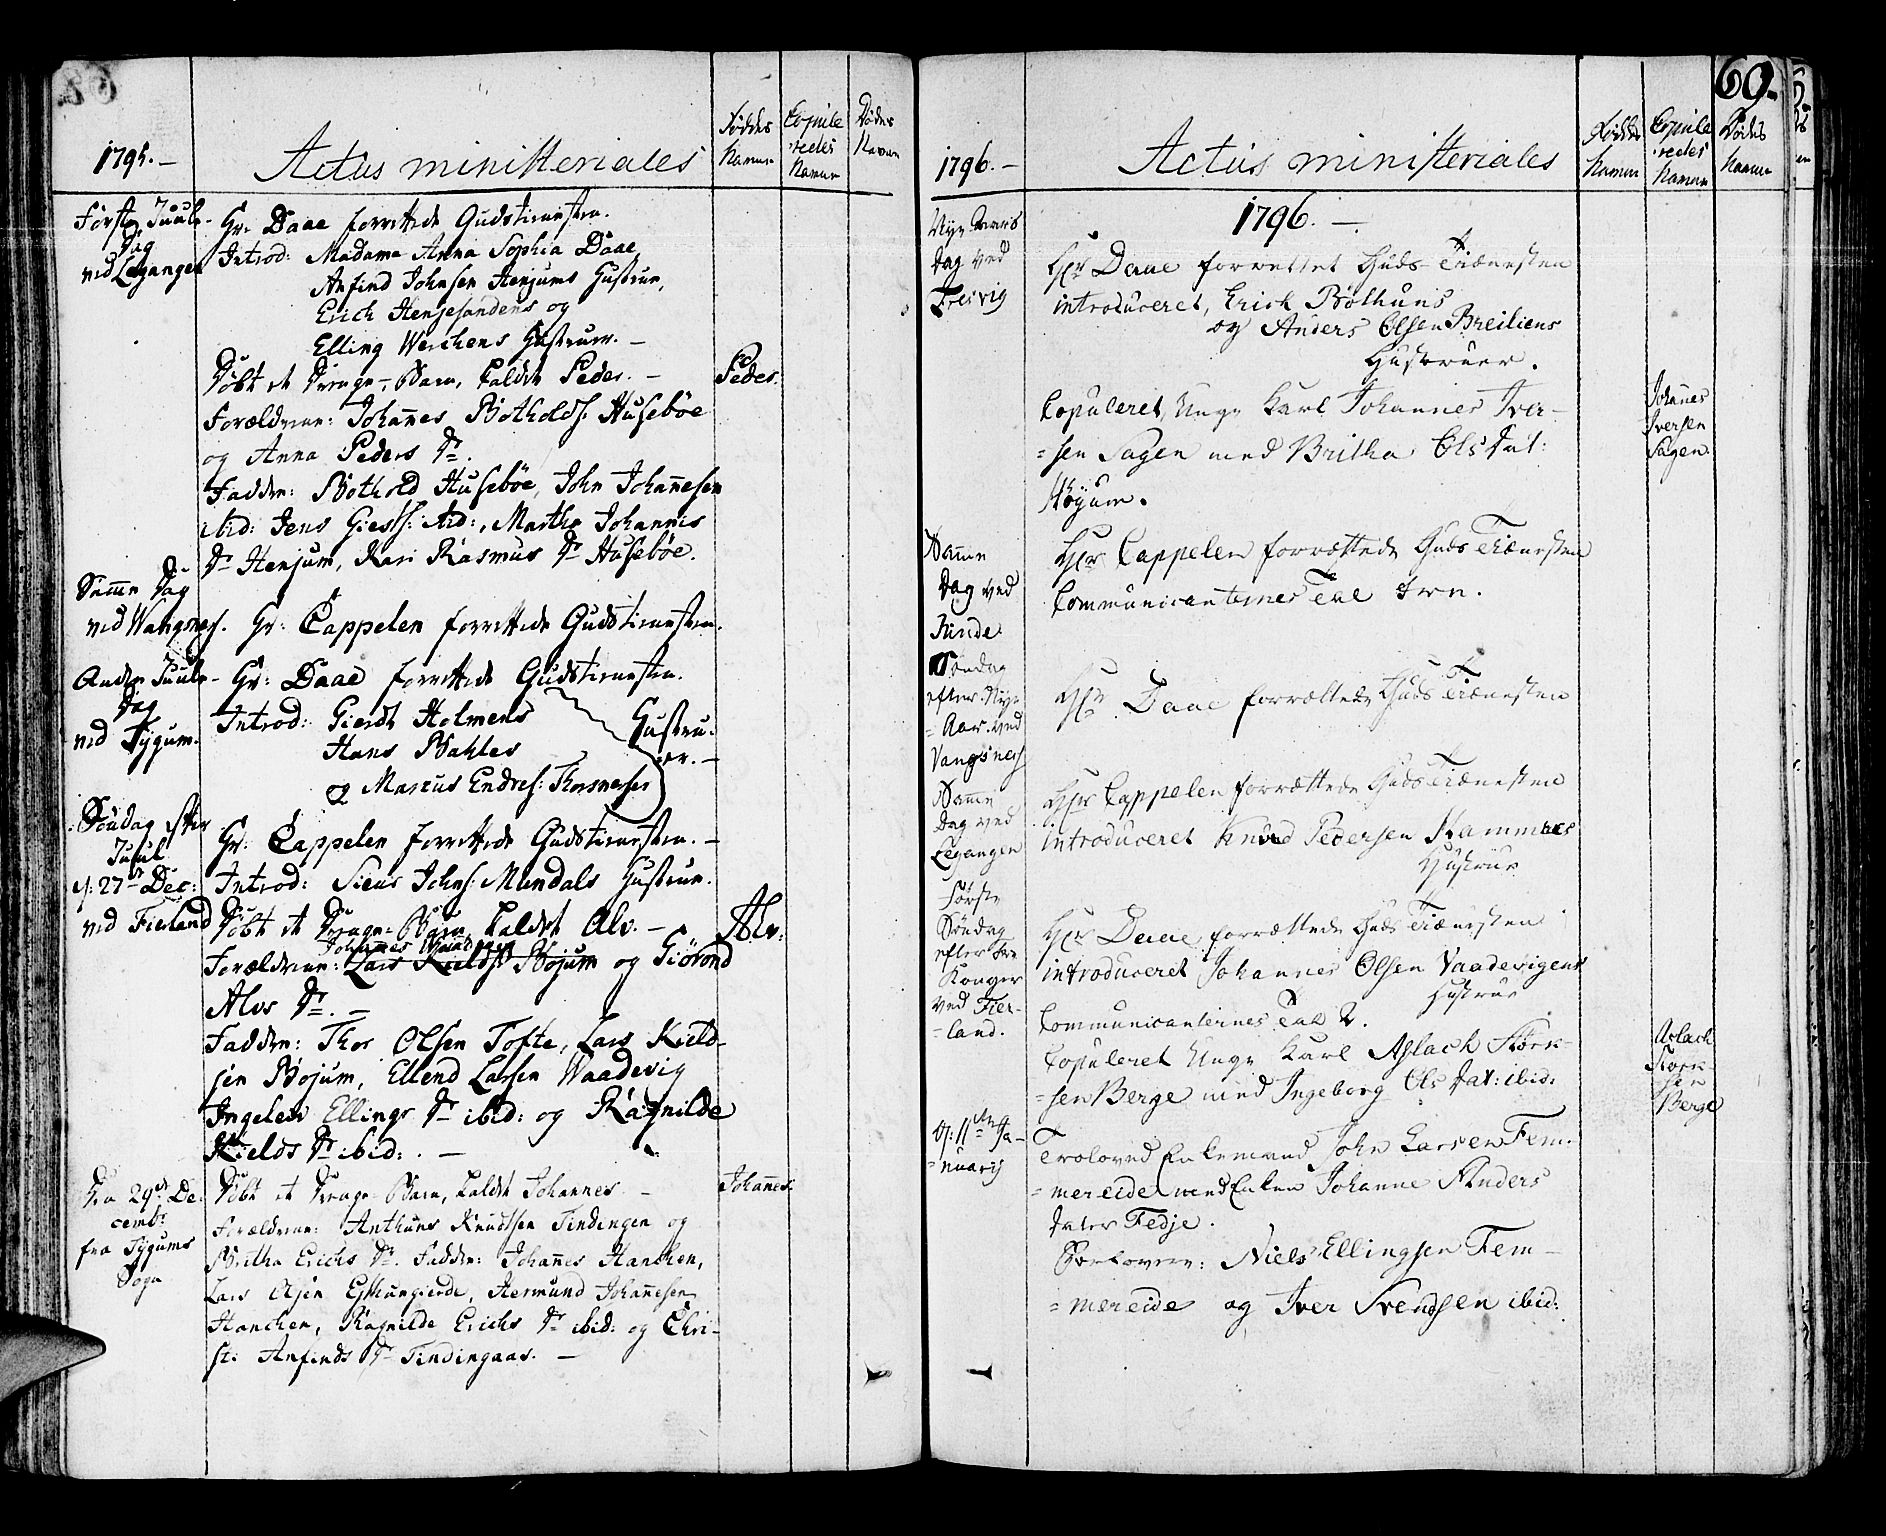 1795.—
Actus ministeriales
Føddes
Nafne
Copule
redes
Nafne
Dødes
Nafne
Første Juule-
Dag
ved Leganger
Hr. Daae forrettede Gudstienesten.
Introd: Madame Anna Sophia Daae
Anfind Johnsen Henjums Hustrue,
Erich Henjesandens og
Elling Werchens Hustruer. —
Døbt et Drenge-Barn, kaldet Peder. —
Peder.
Forældrene: Johañes Botholds: Husebøe
og Anna Peders Dr.
Faddere: Bothold Husebøe, John Johañesen
ibid: Jens Giests: ibid:, Martha Johannis
Dr Henjum, Kari Rasmus Dr Husebøe.
Sam̄e Dag
ved Wangsnes.
Hr: Cappelen forrettede Gudstienesten.
Anden Juule-
Dag
ved Tygum.
Hr: Daae forrettede Gudstienesten.
Introd: Gierdt Holmens
Hans Bahles
og Marcus Endres: Thorsnæsses
Hustru-
er. —
Søndag efter
Juul
d: 27de Dec:
ved Fierland
Hr: Cappelen forrettede Gudstienesten. —
Introd: Sieur Johns: Mundals Hustrue.
Døbt et Drenge-Barn kaldet Alv. —
Alv.
Johannes
Forældrene: Lars Kields: Bøjum og Giörond
Alvs Dr. —
Faddere: Thor Olsen Tofte, Lars Kield-
sen Bøjum, Ellend Larsen Vaadevig
Ingeleiv Ellings Dr ibid: og Ragnilde
Kields Dr ibid: . —
Den 29de De
cembr:
fra Tygums
Sogn
Døbt et Drenge-Barn, kaldet Johannes —
Johañes.
Forældrene: Anthuns Knudtsen Tindingen og
Britha Erichs Dr. Faddere: Johañes Hanchen,
Lars Olsen Eshungierde, Hermund Johañesen
Hanchen, Ragnilde Erichs Dr ibid: og Chri-
sti Anfinds Dr Tindingaas. —
60.
1796.—
Actus ministeriales
Føddes
Nafne
Copule
redes
Nafne
Dødes
Nafne
1796. —
Nye Aars
Dag ved
Fresvig
Hr Daae forrettet Guds-Tiænesten
introduceret, Erich Bøthuns
og Anders Olsen Breiliens
Hustruer.
Copuleret, Unge Karl Johannes Iver-
=sen Sagen med Britha Ols Dat:
Høyum.
Johañes
Iversen
Sagen
Sam̄e
Dag ved
Rinde
Hr Cappelen forrættede Guds Tiænesten
Communicanternes Tal tre.
Søndag
efter Nye
=Aar ved
Vangsness
Hr Daae forrættede Guds Tiænesten
Sam̄e
Dag ved
Leganger
Hr Cappelen forrættede Guds Tiænesten
introduceret Knud Pedersen Hammers
Hustrue
Første
Søndag
efter tre
Konger
ved Fier-
=land.
Hr Daae forrættede Guds Tiænesten
introduceret Johannes Olsen Vaadevigens
Hustrue
Communicanternes Tal 2.
Copuleret Unge Karl Aslach Stork-
=sen Berge med Ingeborg Ols Dat: ibid:
Aslach
Stork-
sen
Berge
d: 11te Ja-
=nuarij
Troloved Enkemand John Larsen Fem-
=mereide med Enken Johanne Anders
Dater Fedje.
Forlovere: Niels Ellingsen Fem-
=mereide og Iver Svendsen ibid: